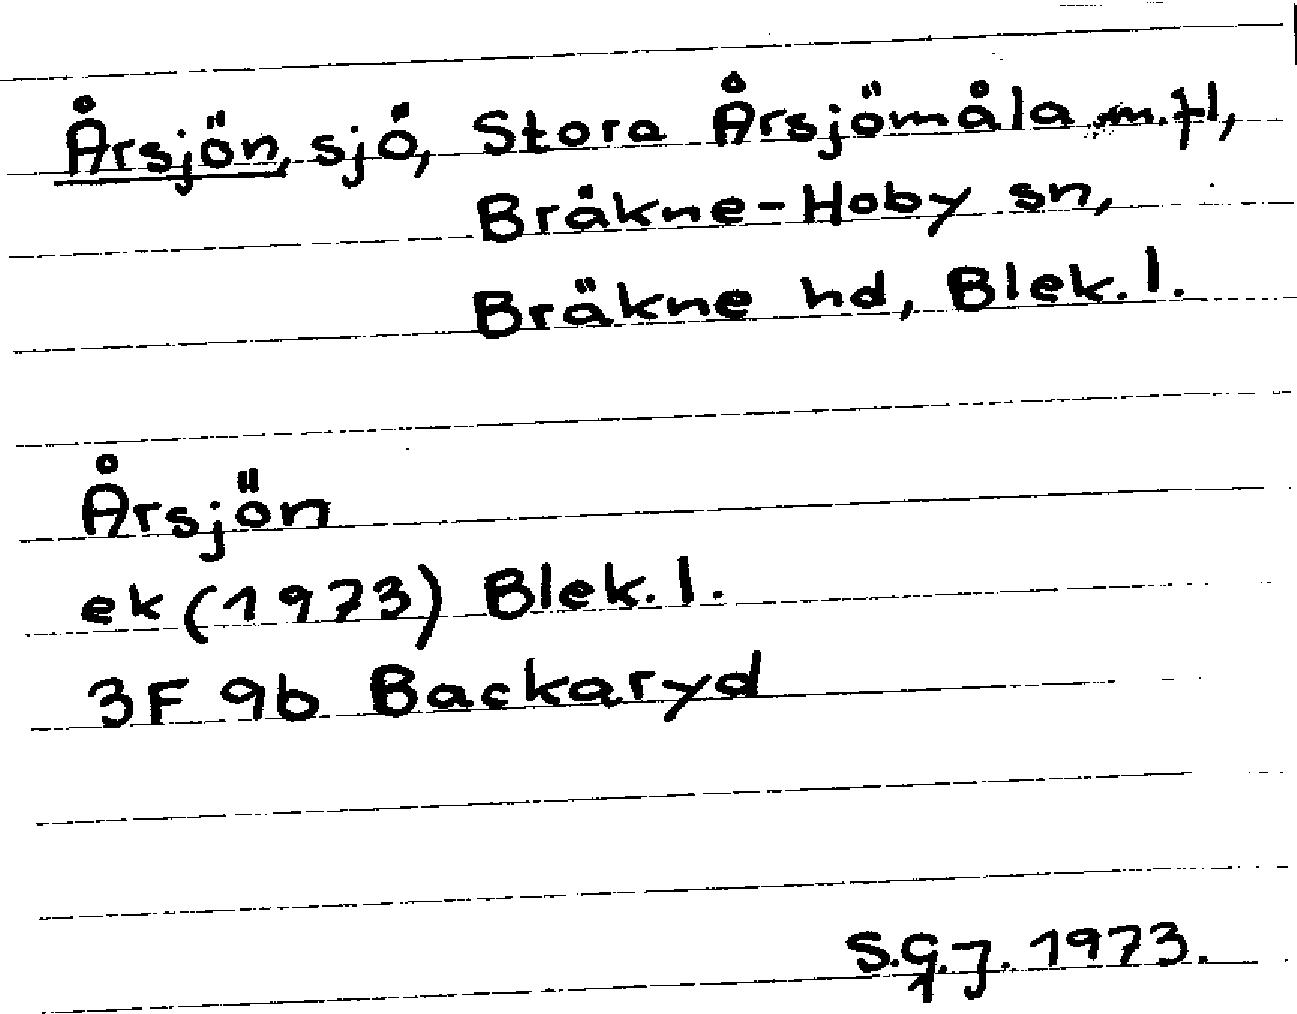 Årsjön, sjö, Stora Årsjömåla m.fl,
Bräkne-Hoby sn,
Bräkne hd, Blek.l.
Årsjön
ek (1973) Blek.l.
3F 9b Backaryd
S.G.J. 1973.